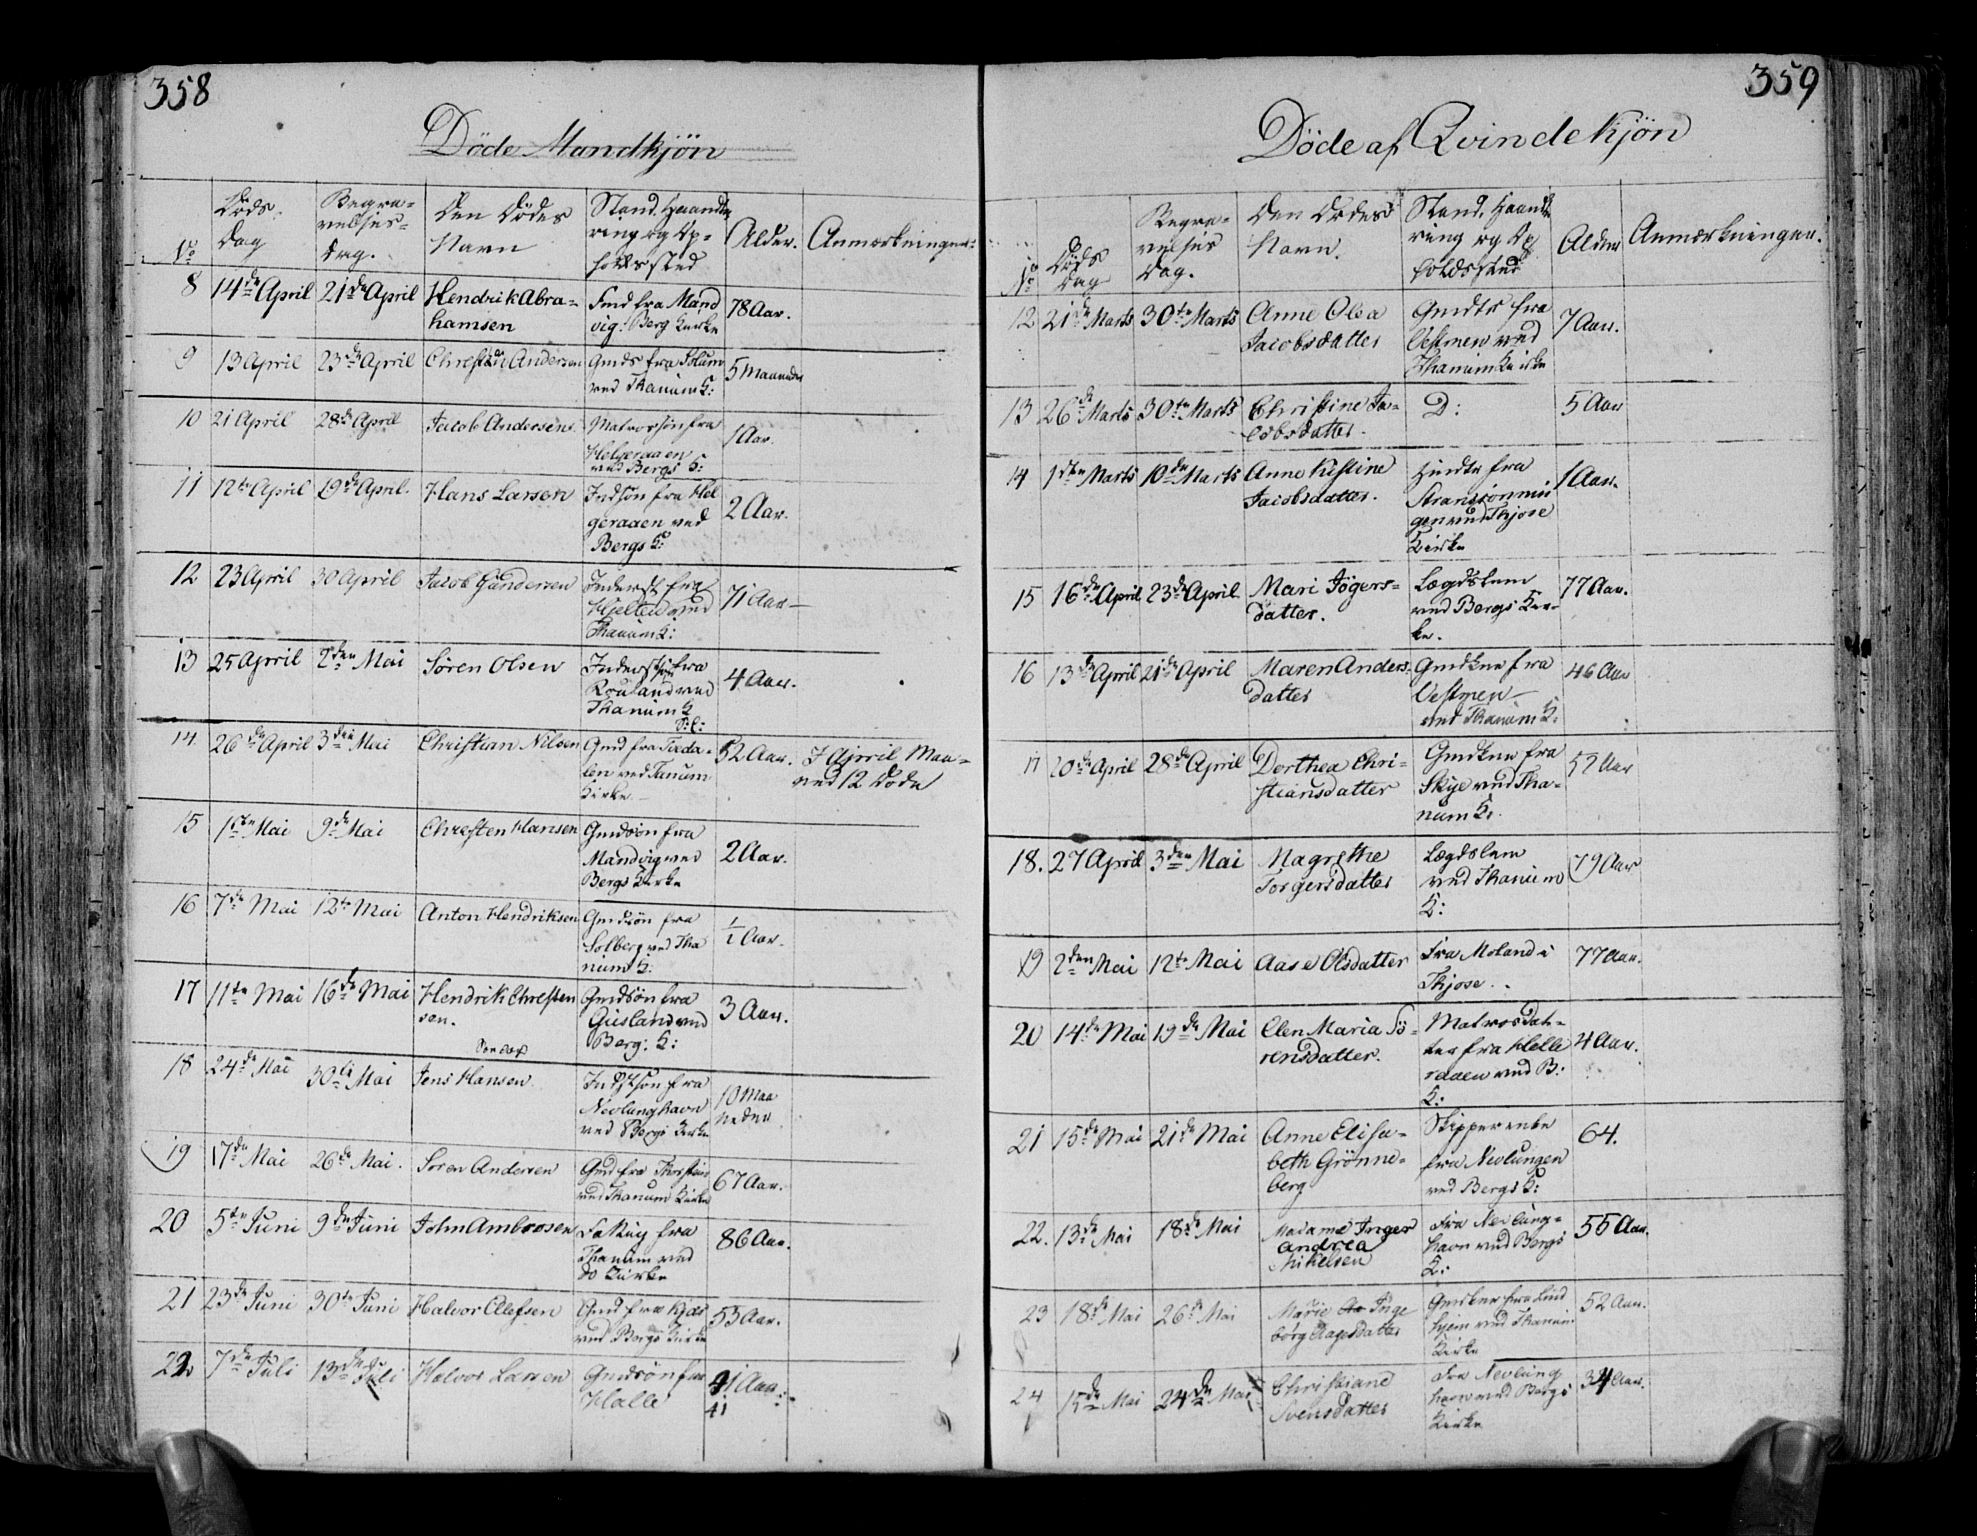 358
Döde Mandkjön
No
Döds Dag
Begravelses Dag.
Den Dödes Navn
Stand, Haandtering og Opholdssted
Alder.
Anmærkninger.
8 14de April 21de April Hendrik Abra=
hamsen
vig: Berg Kirke
78 Aar.
9 13 April 23de April Andersen
ved Thanum K:
5 Maaneder
10 21 April 28de April Jacob Andersen
Matrossön fra
Helgeraaen
ved Bergs K:
1 Aar.
11 12te April 19de April. Hans Larsen
Indsön fra Hel
geraaen ved
Bergs K:
2 Aar.
12 23 April 30 April Jacob Gundersen
Inderst fra
ved
Thanum K:
71 Aar
13 25 April 2den Mai Sören Olsen
fra
ved
Thanum K
4 Aar.
14 26de April 3den Mai Christian Nilsen
Gmd fra
ved Tanum
Kirke
52 Aar.
I April Maa=
ned 12 Döde
15 1ste Mai 9de Mai Chresten Hansen
Gmdsön fra
Mandvig ved
Bergs Kirke
2 Aar.
16 7de Mai 12te Mai Anton Hendriksen
Gmdsön fra
Solberg ved Tha
num K:
Aar.
17 11te Mai 16de Mai Hendrik Chresten
sen.
Gmdsön fra
ved
Berg. K:
3 Aar.
18 24de Mai 30te Mai Jens Hansen
fra
Nevlunghavn
ved Bergs Kirke
10 Maa
neder
19 17de Mai 26de Mai. Soren Andersen
Gmd fra
ved Thanum Kirke
67 Aar.
20 5te Juni 9de Juni John Ambrosen
fra
Thanum ved
do Kirke
86 Aar.
21 23de Juni 30te Juni Halvor Ollefsen
Gmd fra
ved Bergs Kirke
53 Aar.
22 7de Juli 13de Juli Halvor Larsen
Gmdsön fra
Halle
41 Aar.
41
359
Döde af Qvindekjön
No
Döds Dag
Begravelses Dag.
Den Dödes Navn.
Stand, Haandtering og Opholdssted
Alder
Anmærkninger.
12 21de Marts 30te Marts Anne Olea
Jacobsdatter
Gmdtr fra
Vestmen ved
Thanum Kirke
7 Aar.
13 26de Marts 30te Marts Christine Ja=
cobsdatter
D:
5 Aar
14 1ste Marts 10de Marts Anne Kistine
Jacobsdatter.
fra
ved Thjose
Kirke
1 Aar.
15 16de April 23de April Mari Jögers=
datter.
Lægdslem
ved Bergs Kir=
ke.
77 Aar.
16 13de April 21de April Maren Anders=
datter
Gmdkne fra
Vestmen
ved Thanum K:
46 Aar
17 20de April 28de April Dorthea Chri=
stiansdatter
Gmdkne fra
Skye ved Tha=
num K:
52 Aar
18. 27 April 3den Mai Magrethe
Torgersdatter
Lægdslem
ved Thanum
K:
79 Aar
19 2den Mai 12te Mai Aase Olsdatter
Fra Moland i
Thjose.
77 Aar.
20 14de Mai 19de Mai Elen Maria Sö=
rensdatter.
Matrosdat=
ter fra Helle
raaen ved B:
K:
4 Aar.
21 15de Mai 21de Mai Anne Elisa=
beth Grönne=
berg
Skipperenke
fra Nevlungen
ved Bergs K:
64.
22. 13de Mai 18de Mai Madame Inger
Andrea
Mikelsen
Fra Nevlung=
havn ved Bergs
K:
55 Aar.
23 18de Mai 26de Mai Marie Inge
borg Aagesdatter
Gmdkne fra Lind
hjem ved Thanum
Kirke
52 Aar.
24 15de Mai 24de Mai Christiane
Svensdatter
Fra Nevlung
havn ved Bergs
Kirke
34 Aar.